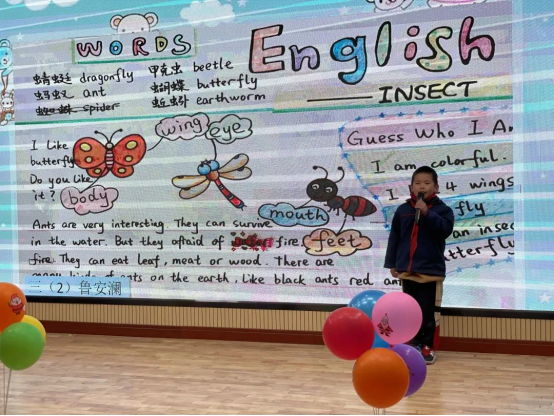 WORDS
English
INSECT
蜻蜓 dragonfly
甲壳虫 beetle
蚂蚁 ant
蝴蝶 butterfly
蜘蛛 spider
蚯蚓 earthworm
wing
eye
body
mouth
feet
I like
butterfly
Do you like
it?
Guess Who I A
I am colorful.
I 4 wings
fly
an insec
tterfly
Ants are very interesting. They can survive
in the water. But they afraid of fire.
fire. They can eat leaf, meat or wood. There are
many kinds of ants on the earth, Like black ants red an
三（2）鲁安澜